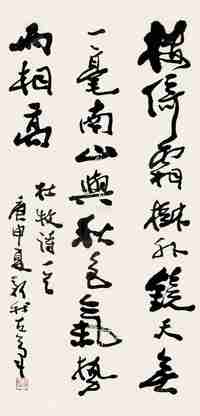 樓倚霜樹外鏡天無
一毫南山與秋色氣勢
兩相高
杜牧詩一首
庚申夏新我左筆